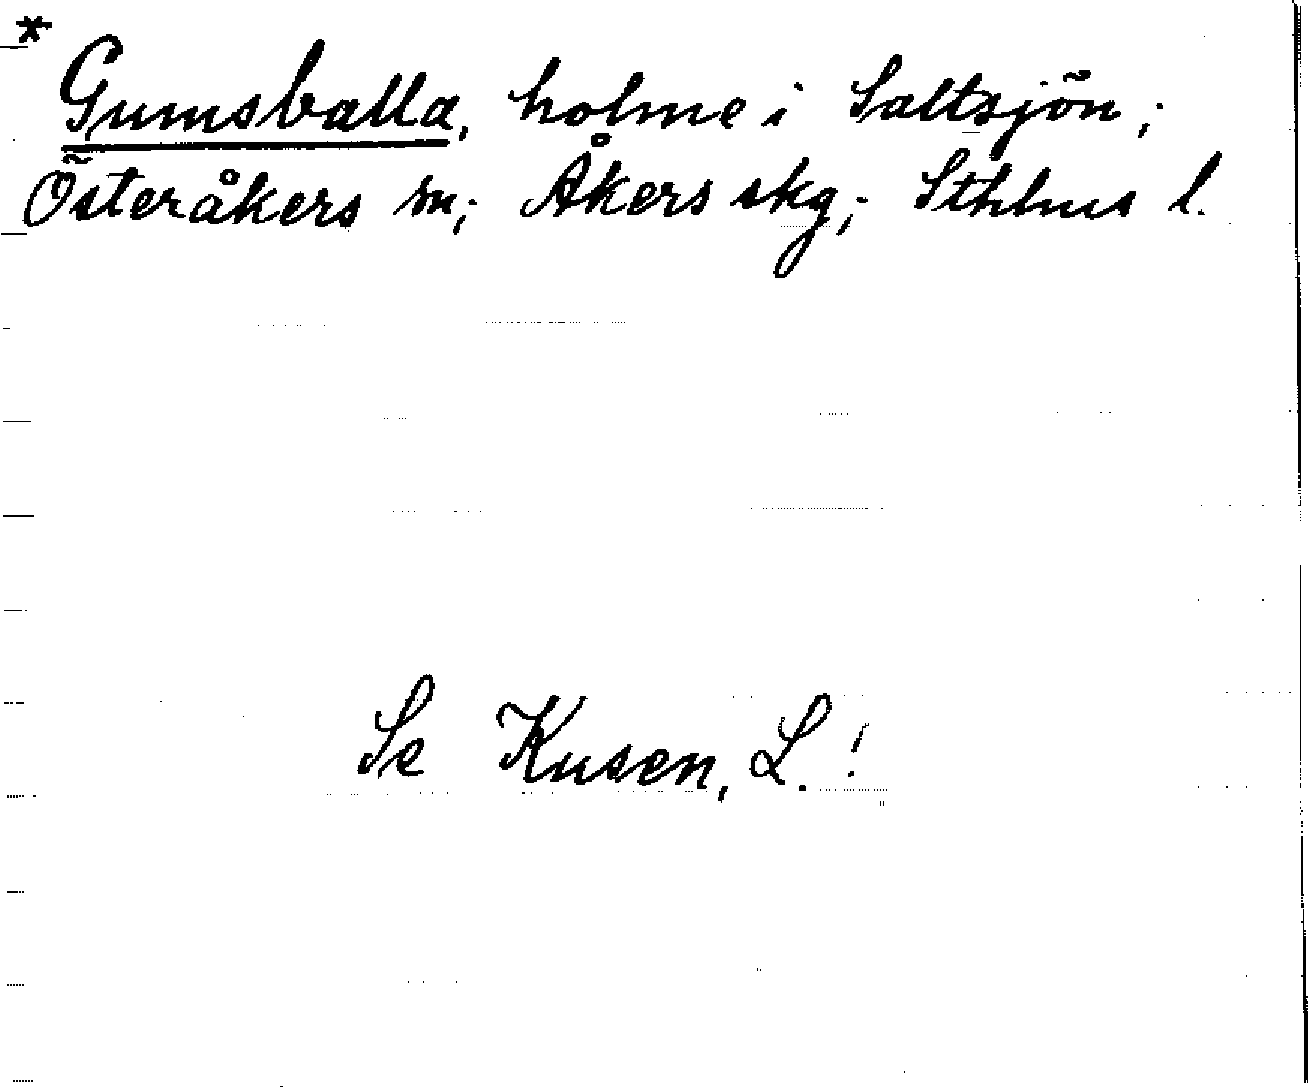 * Gumsballa, holme i Saltsjön;
Österåkers sn; Åkers skg; Sthlms l.
Se Kusen, L.!